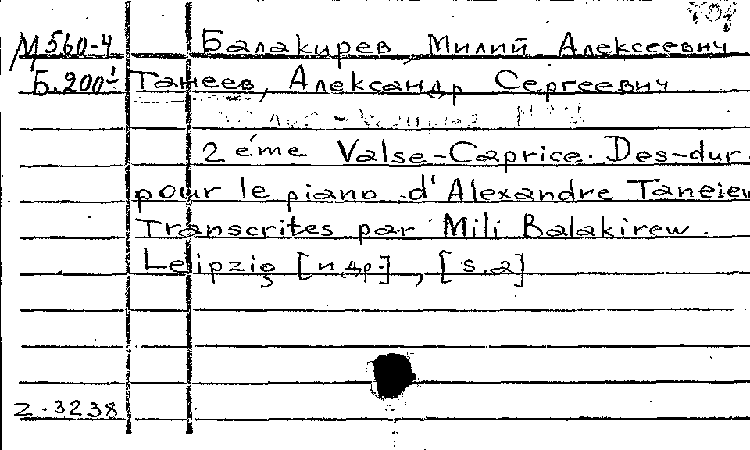 М560-4 Балакирев, Милий Алексеевич
Б.200¹ Танеев, Александр Сергеевич
2 éme Valse-Caprice. Des-dur
pour le piano d'Alexandre Taneiew
Transcrites par Mili Balakirew.
Leipzig [и др.], [s.a]
2-3238